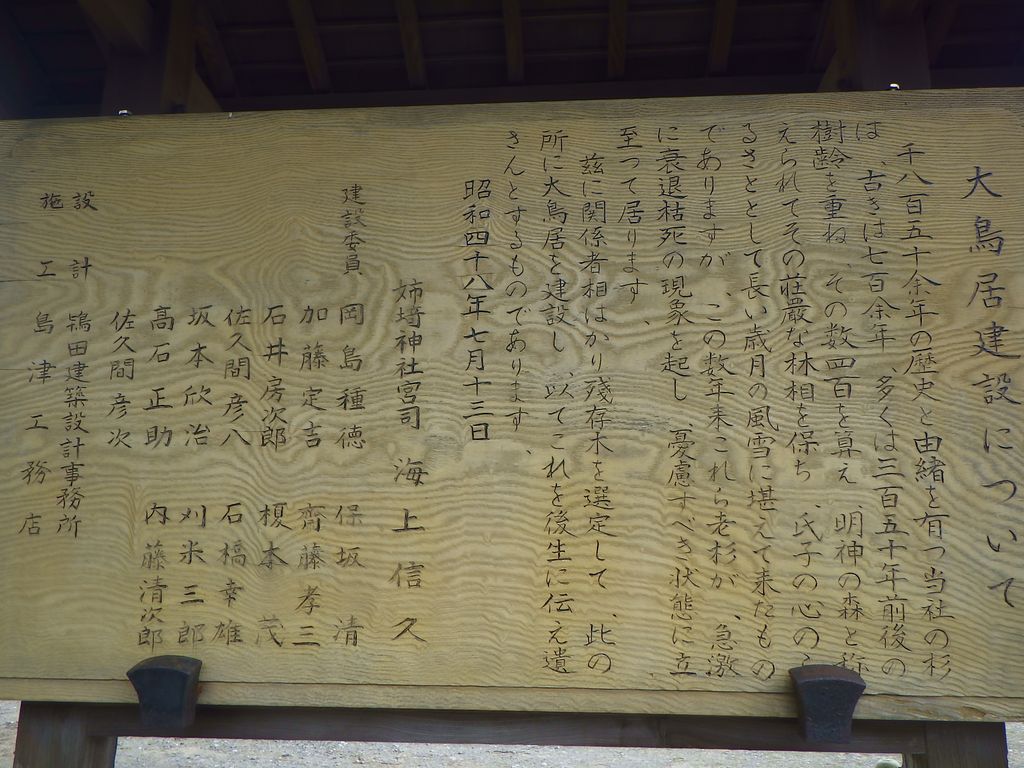 大鳥居建設について
千八百五十余年の歴史と由緒を有つ当社の杉
は、古きは七百余年、多くは三百五十年前後の
樹齢を重ね、その数四百を算え、明神の森と称
えられてその荘厳な林相を保ち、氏子の心のふ
るさととして長い歳月の風雪に堪えて来たもの
でありますが、この数年来これら老杉が、急激
に衰退枯死の現象を起し、憂慮すべき状態に立
至って居ります、
茲に関係者相はかり残存木を選定して、此の
所に大鳥居を建設し、以てこれを後生に伝え遺
さんとするものであります、
昭和四十八年七月十三日
姉埼神社宮司 海上信久
建設委員 岡島種徳 保坂清
加藤定吉 齊藤孝三
石井房次郎 榎本茂
佐久間彦八 石橋幸雄
坂本欣治 刈米三郎
髙石正助 内藤清次郎
佐久間彦次
設計 鴇田建築設計事務所
施工 島津工務店